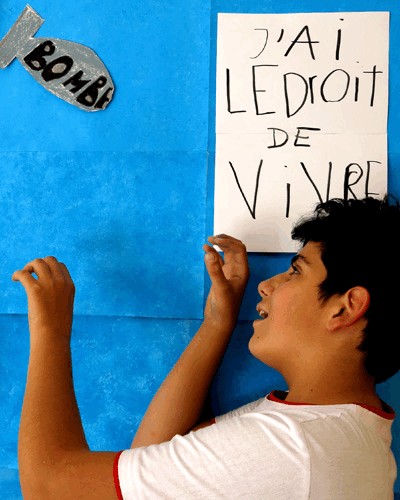 BOMBE
J'Ai
LEDrOiT
DE
ViVRE